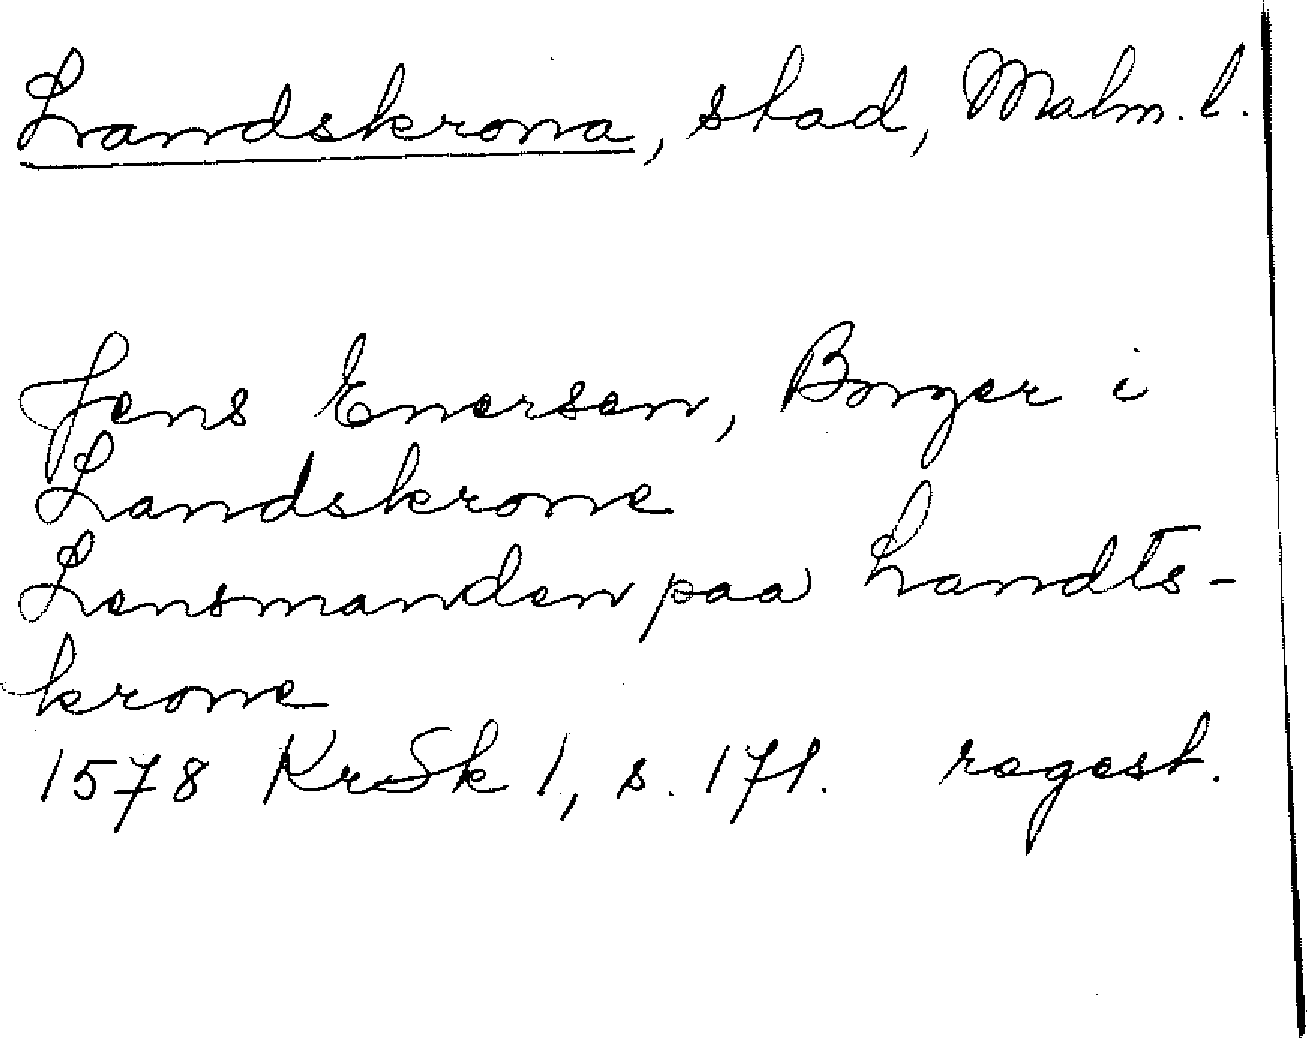 Landskrona, stad, Malm. l.
Jens Enersen, Borger i
Landskrone
Lensmanden paa Landts-
krone
1578 KrSk 1, s. 171. regest.